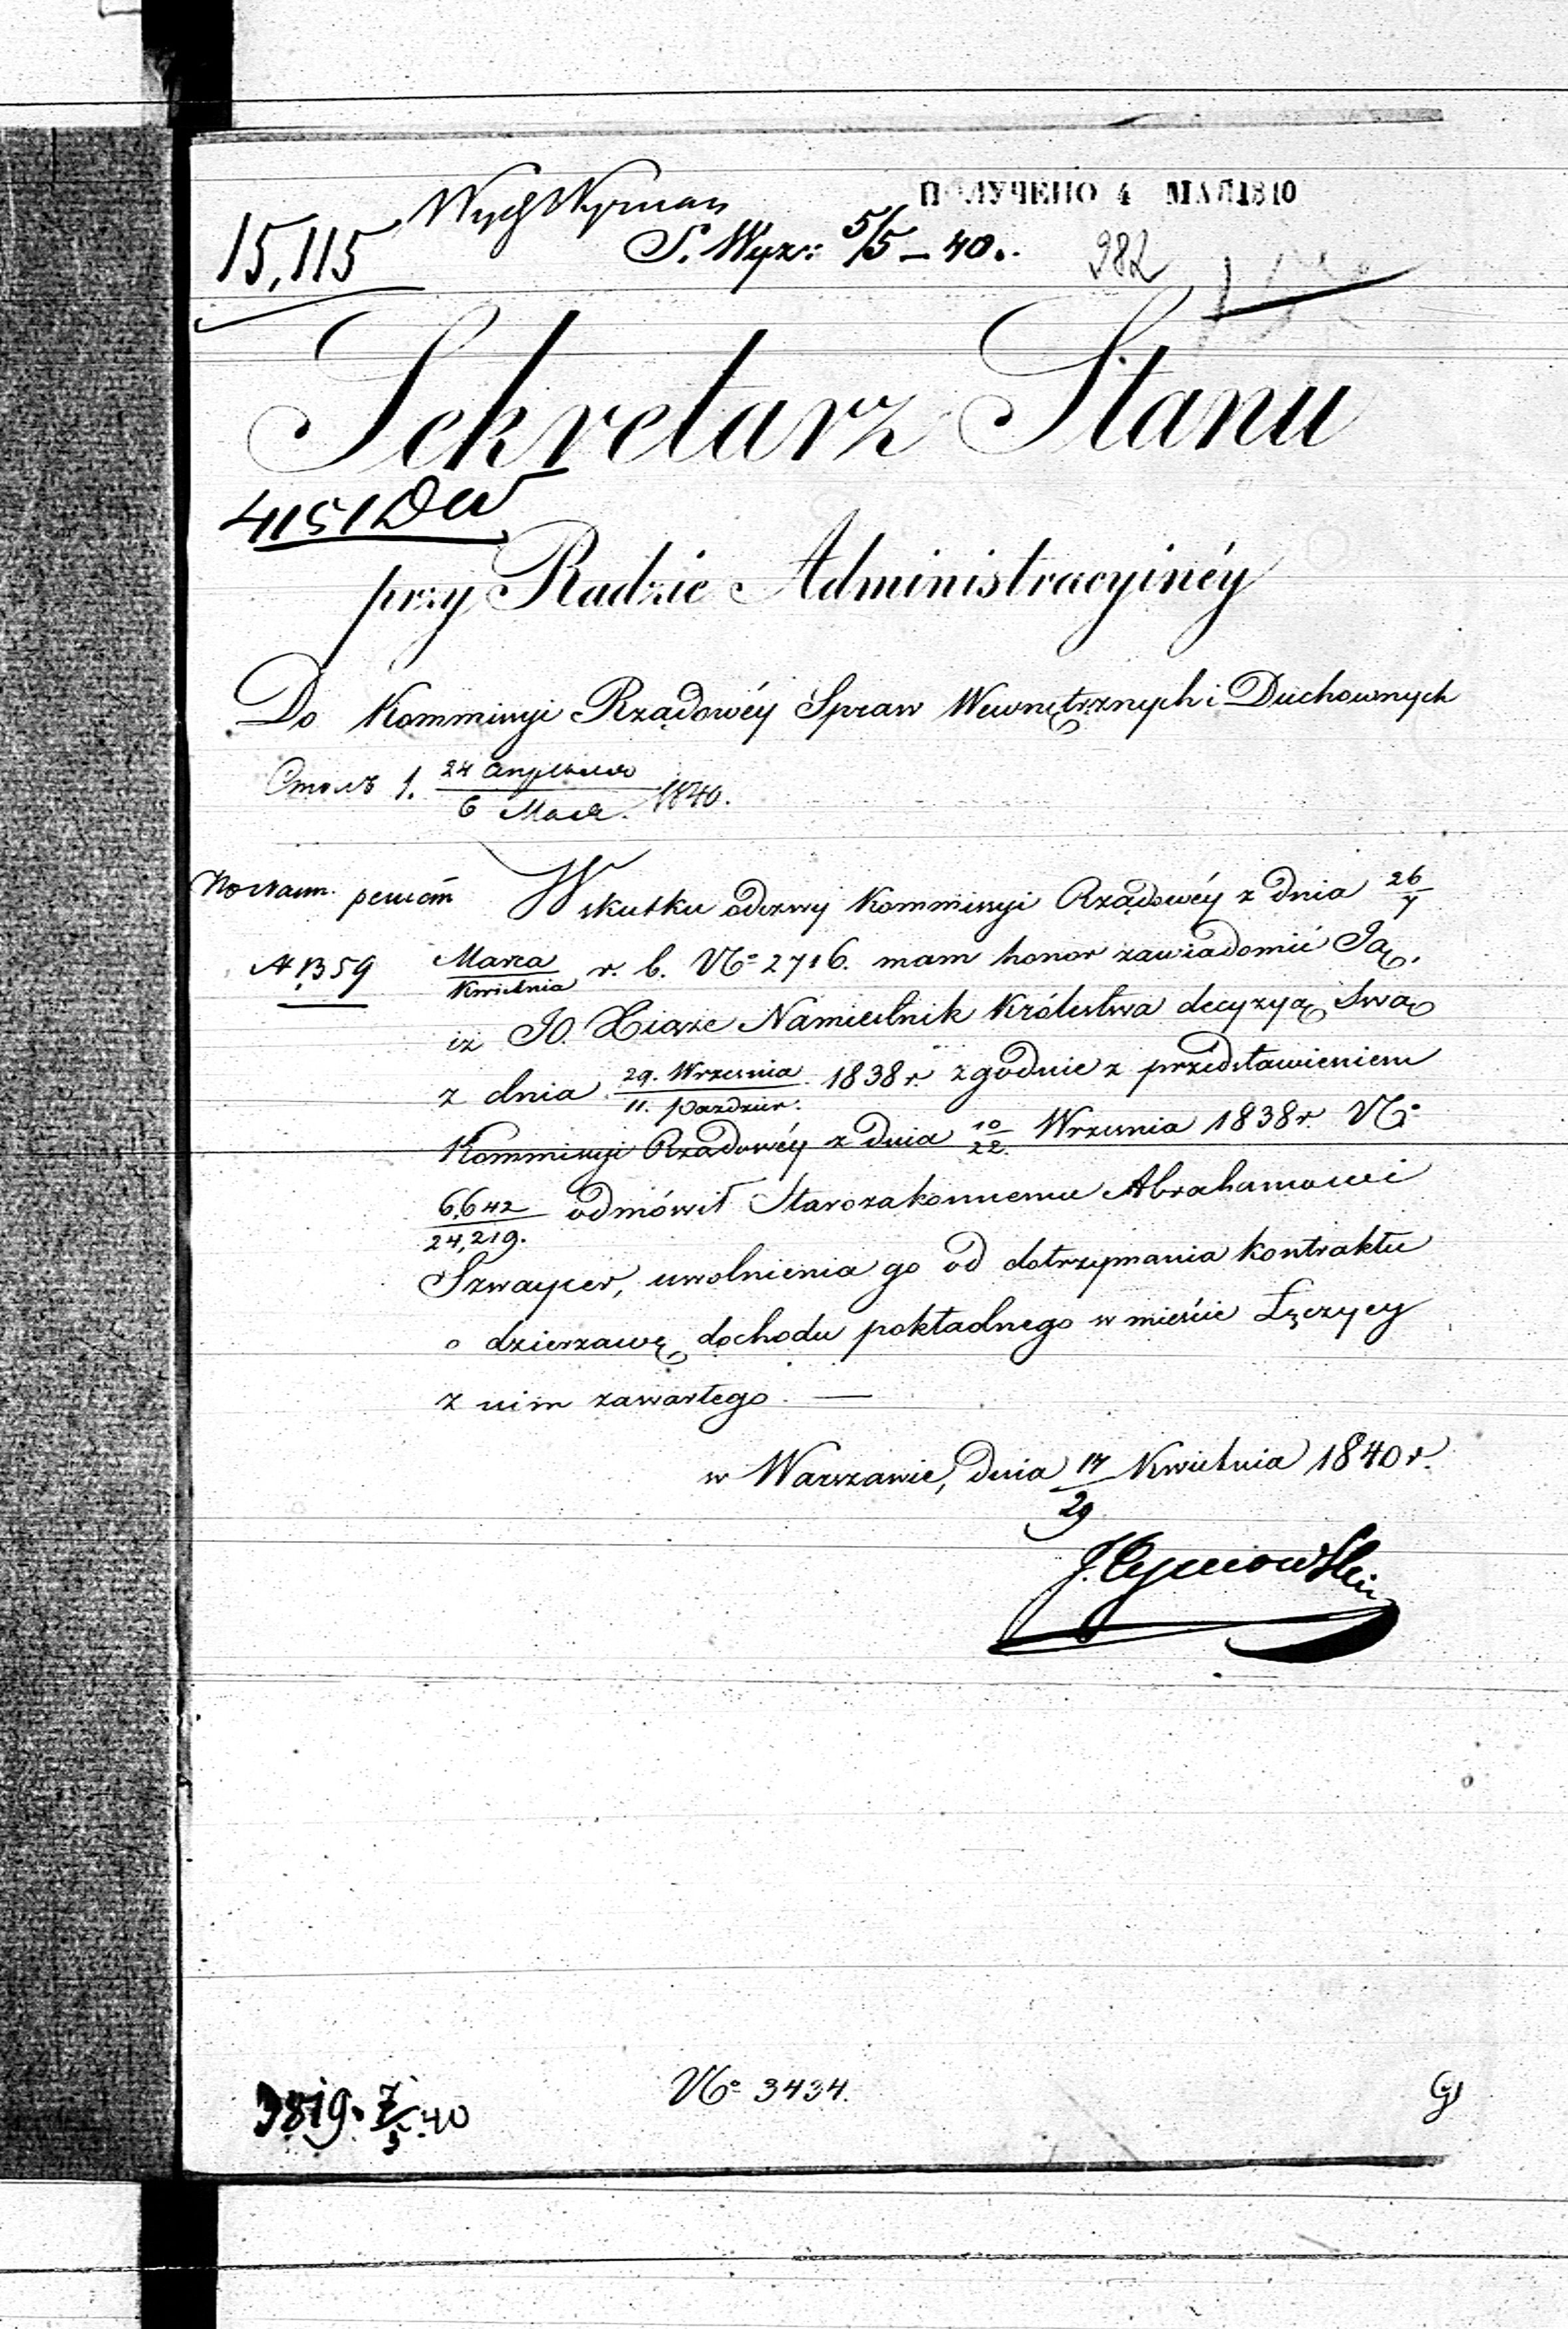 ПОЛУЧЕНО 4 МАЯ 1840
15,115
S. Wyzn: 5/5 – 40.
982
Sekretarz Stanu
4151 DW
przy Radzie Administracyinéy
Do Kommissyi Rządowéy Spraw Wewnętrznych i Duchownych
Столъ 1. 24 Апрѣля / 6 Мая 1840.
W skutku odezwy Kommissyi Rządowéy z dnia 26/7
N 1359
Marca/Kwietnia r. b. No 2716. mam honor zawiadomić Ją,
iż JO. Xiąże Namiestnik Królestwa decyzyą Swą
z dnia 29. Września / 11. Paździer. 1838 r. zgodnie z przedstawieniem
Kommissyi Rządowéy z dnia 10/22. Września 1838 r. No
6,642/24,219. odmówił Starozakonnemu Abrahamowi
Szwaycer, uwolnienia go od dotrzymania kontraktu
o dzierzawę dochodu pokładnego w mieście Łęczycy
z nim zawartego. —
w Warszawie, dnia 17/29 Kwietnia 1840 r.
3819. 7/5 40
No 3434.